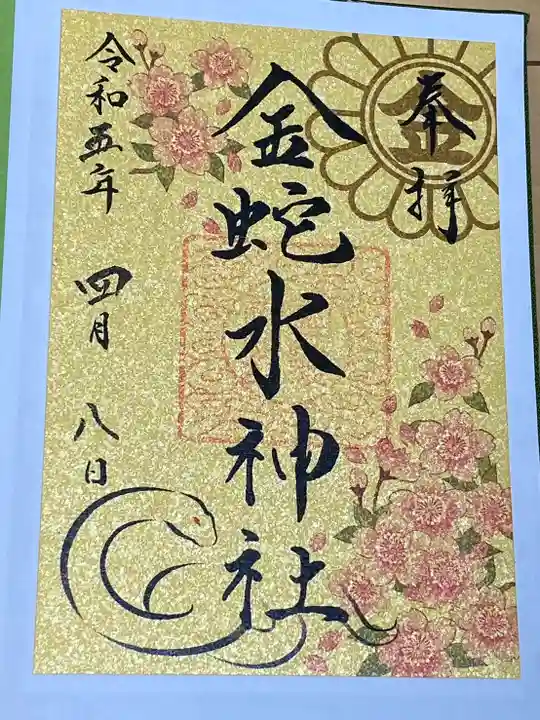 奉拝
金
金蛇水神社
令和五年
四月
八日